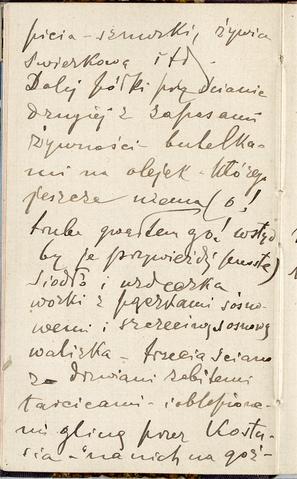 picia - sznurki, żywica
świerkowa i td.
Dalej półki przy ścianie
drugiej z zapasami
żywności - butelka-
mi na olejek - którego
jeszcze niema (o!
trzeba go! wstyd
by je przywieźć puste)
siodło i uzdeczka
worki z pączkami sosno-
wemi i szczeciną sosnową
walizka - trzecia ściana
z - drzwiami zabitemi
tarcicami - i oblepione-
mi gliną przez Kostu-
sia - na nich na goź-